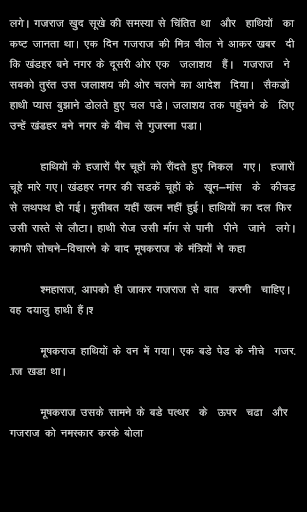 लगे। गजराज खुद सूखे की समस्या से चिंतित था और हाथियों का
कष्ट जानता था। एक दिन गजराज की मित्र चील ने आकर खबर दी
कि खंडहर बने नगर के दूसरी ओर एक जलाशय हैं। गजराज ने
सबको तुरंत उस जलाशय की ओर चलने का आदेश दिया। सैकडों
हाथी प्यास बुझाने डोलते हुए चल पडे। जलाशय तक पहुंचने के लिए
उन्हें खंडहर बने नगर के बीच से गुजरना पडा।
हाथियों के हजारों पैर चूहों को रौंदते हुए निकल गए। हजारों
चूहे मारे गए। खंडहर नगर की सडकें चूहों के खून–मांस के कीचड
से लथपथ हो गई। मुसीबत यहीं खत्म नहीं हुई। हाथियों का दल फिर
उसी रास्ते से लौटा। हाथी रोज उसी र्माग से पानी पीने जाने लगे।
काफी सोचने–विचारने के बाद मूषकराज के मंत्रियों ने कहा
श्महाराज, आपको ही जाकर गजराज से बात करनी चाहिए।
वह दयालु हाथी हैं।श्
मूषकराज हाथियों के वन में गया। एक बडे पेड के नीचे गजर.
.ाज खडा था।
मूषकराज उसके सामने के बडे पत्थर के ऊपर चढा और
गजराज को नमस्कार करके बोला